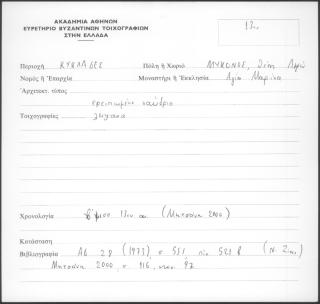 ΑΚΑΔΗΜΙΑ ΑΘΗΝΩΝ
ΕΥΡΕΤΗΡΙΟ ΒΥΖΑΝΤΙΝΩΝ ΤΟΙΧΟΓΡΑΦΙΩΝ
ΣΤΗΝ ΕΛΛΑΔΑ
Περιοχή ΚΥΚΛΑΔΕΣ Πόλη ἤ Χωριό ΜΥΚΟΝΟΣ,
Νομός ἤ Ἐπαρχία Μοναστήρι ἤ Ἐκκλησία Αγία Μαρίνα
Ἀρχιτεκτ. τύπος
ερειπωμένο ναύδριο
Τοιχογραφίες λείψανα
Χρονολογία β' μισό 13ου αι. (Μητσάνη 2000)
Κατάσταση
Βιβλιογραφία ΑΔ 28 (1973), σ 551 πίν 521 β
Μητσάνη 2000, σ 116,